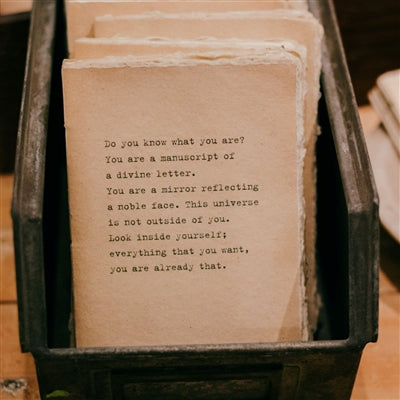 Do you know what you are?
You are a manuscript of
a divine letter.
You are a mirror reflecting
a noble face. This universe
is not outside of you.
Look inside yourself;
everything that you want,
you are already that.